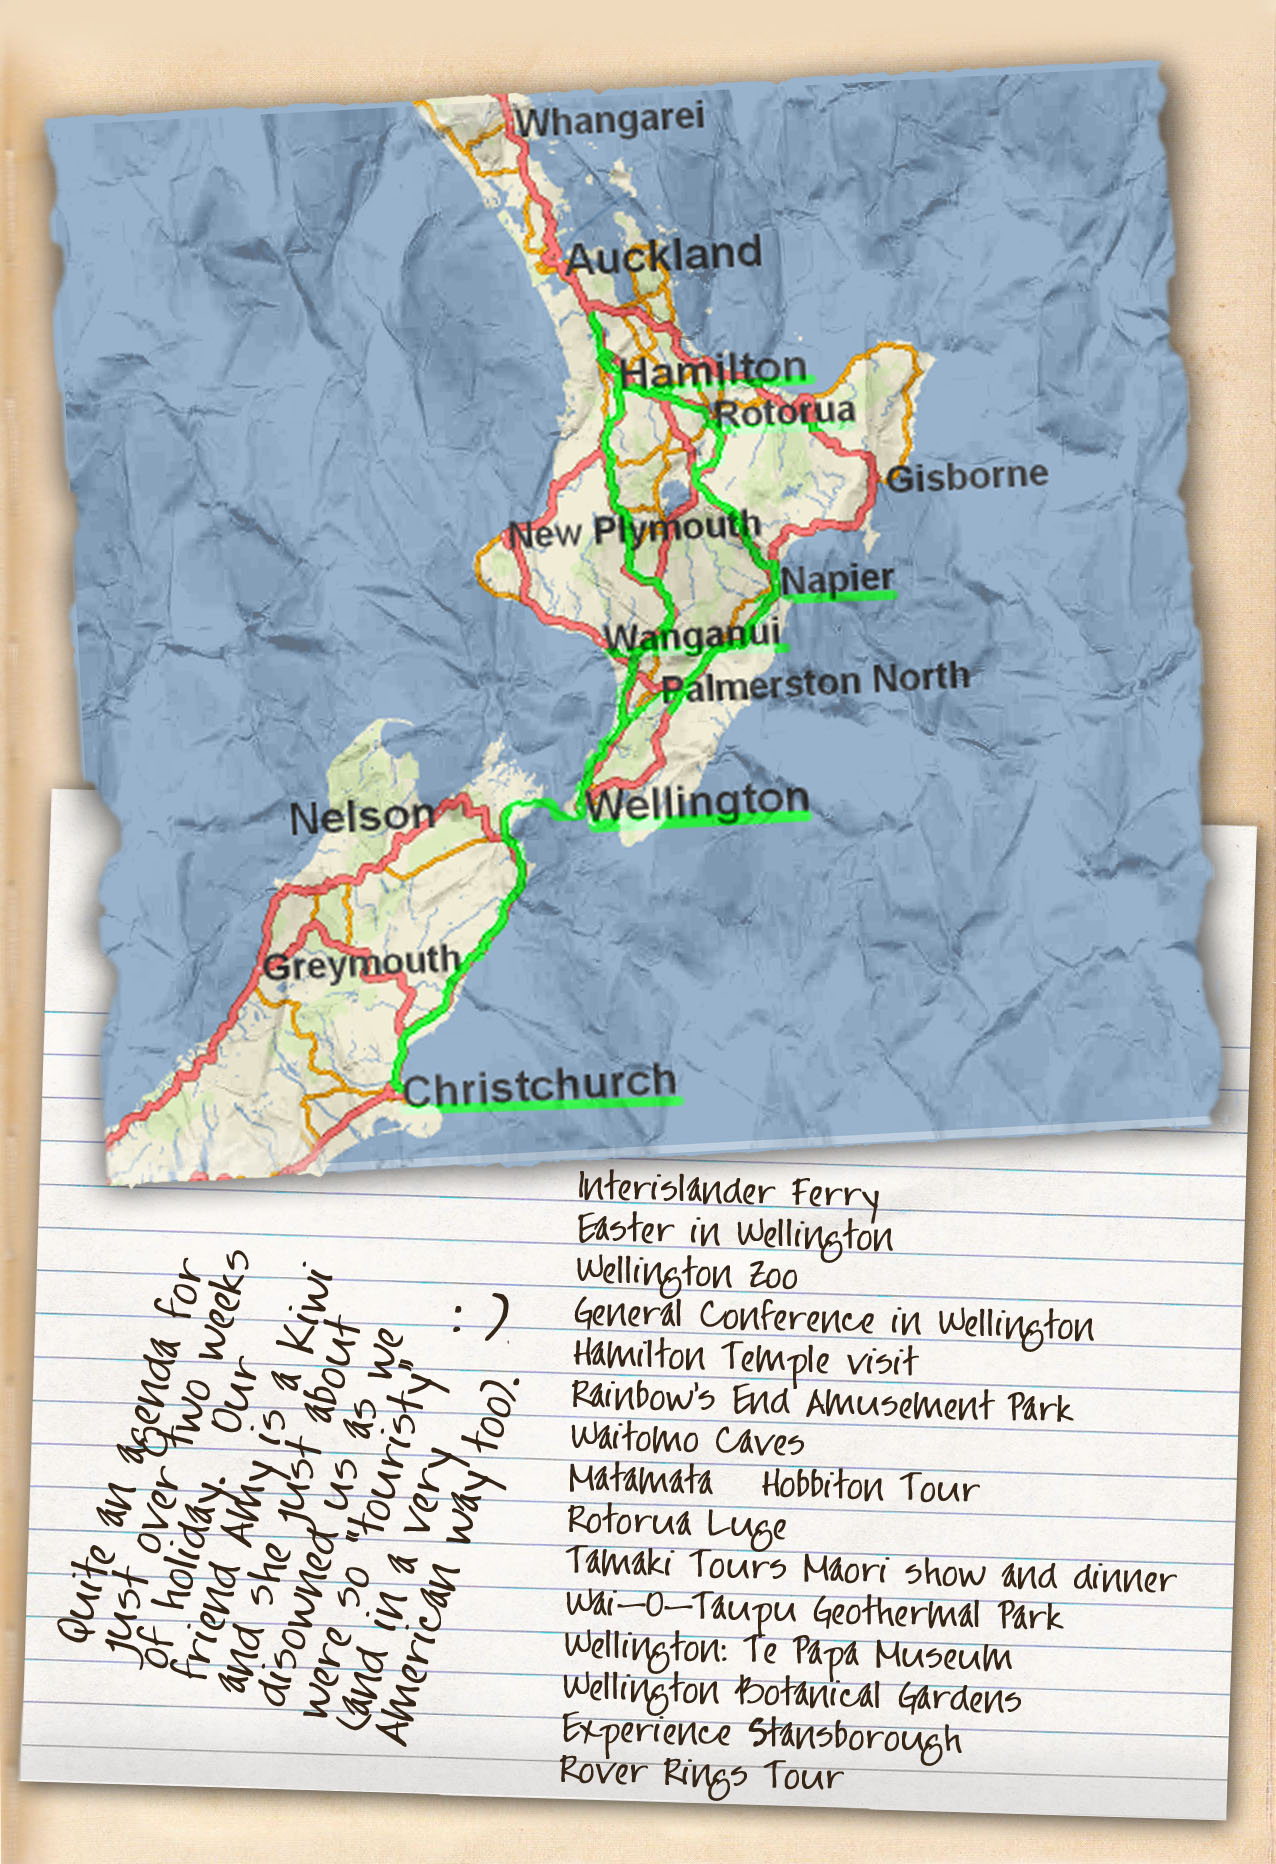 Whangarei
Auckland
Hamilton
Rotorua
Gisborne
New Plymouth
Napier
Wanganui
Palmerston North
Wellington
Nelson
Greymouth
Christchurch
Quite an agenda for
just over two weeks
of holiday. Our
friend Amy is a Kiwi
and she just about
disowned us as we
were so "touristy"
(and in a very
American way too).
:)
Interislander Ferry
Easter in Wellington
Wellington Zoo
General Conference in Wellington
Hamilton Temple visit
Rainbow's End Amusement Park
Waitomo Caves
Matamata Hobbiton Tour
Rotorua Luge
Tamaki Tours Maori show and dinner
Wai-O-Taupu Geothermal Park
Wellington: Te Papa Museum
Wellington Botanical Gardens
Experience Stansborough
Rover Rings Tour